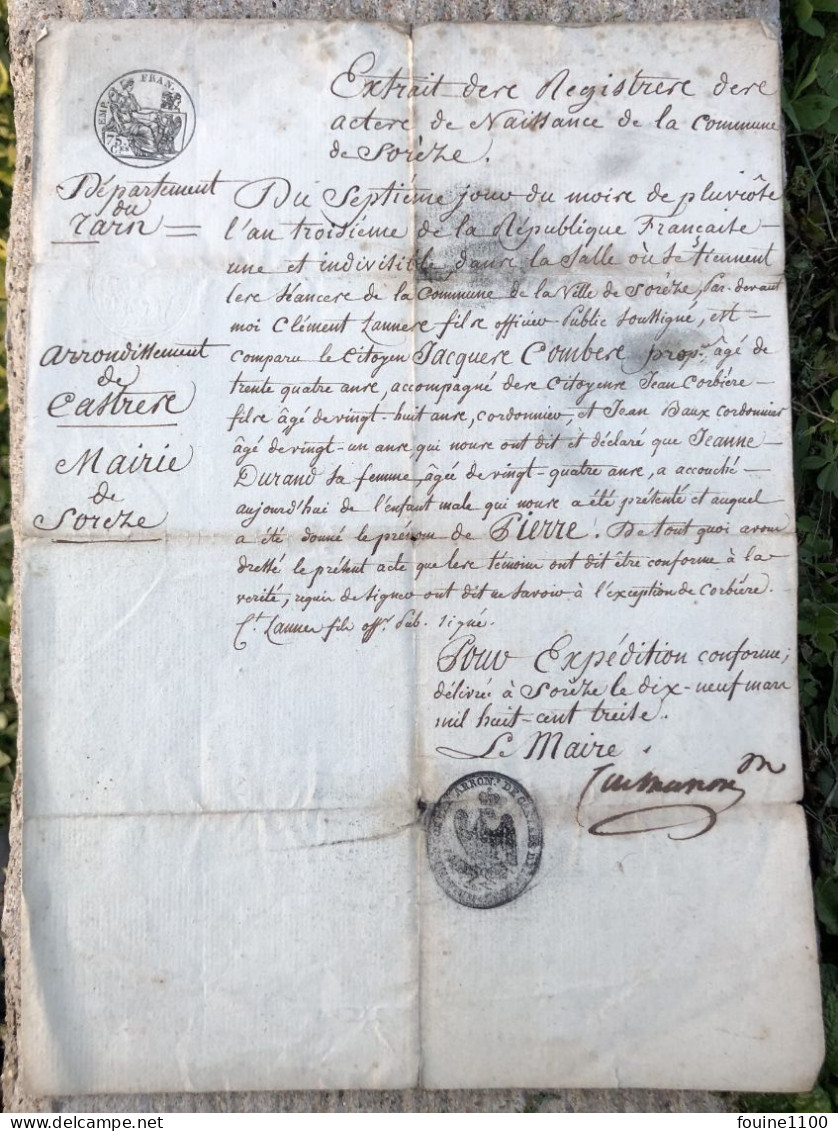 EMP. FRAN.
75 C.
Extrait des Registres des
actes de Naissance de la Commune
de Sorèze.
Département
du
Tarn
Arrondissement
de
Castres
Mairie
de
Sorèze
Du Septième jour du mois de pluviôse
l'an troisième de la République Française
une et indivisible, dans la Salle où se tiennent
les séances de la Commune de la Ville de Sorèze, Par-devant
moi Clément Lannes fils officier Public Soussigné, est
comparu le Citoyen Jacques Combes prop.re âgé de
trente quatre ans, accompagné des Citoyens Jean Corbière
fils âgé de vingt-huit ans, cordonnier, et Jean Baux cordonnier
âgé de vingt-un ans qui nous ont dit et déclaré que Jeanne
Durand sa femme âgée de vingt-quatre ans, a accouché
aujourd'hui de l'enfant male qui nous a été présenté et auquel
a été donné le prénom de Pierre. De tout quoi avons
dressé le présent acte que les témoins ont dit être conforme à la
verité, requis de signer ont dit ne savoir à l'exception de Corbière.
C.t Lannes fils off.r Pub. signé.
Pour Expédition conforme;
délivré à Sorèze le dix-neuf mars
mil huit-cent treise.
Le Maire
ARRON.T DE CASTRES
fouine1100